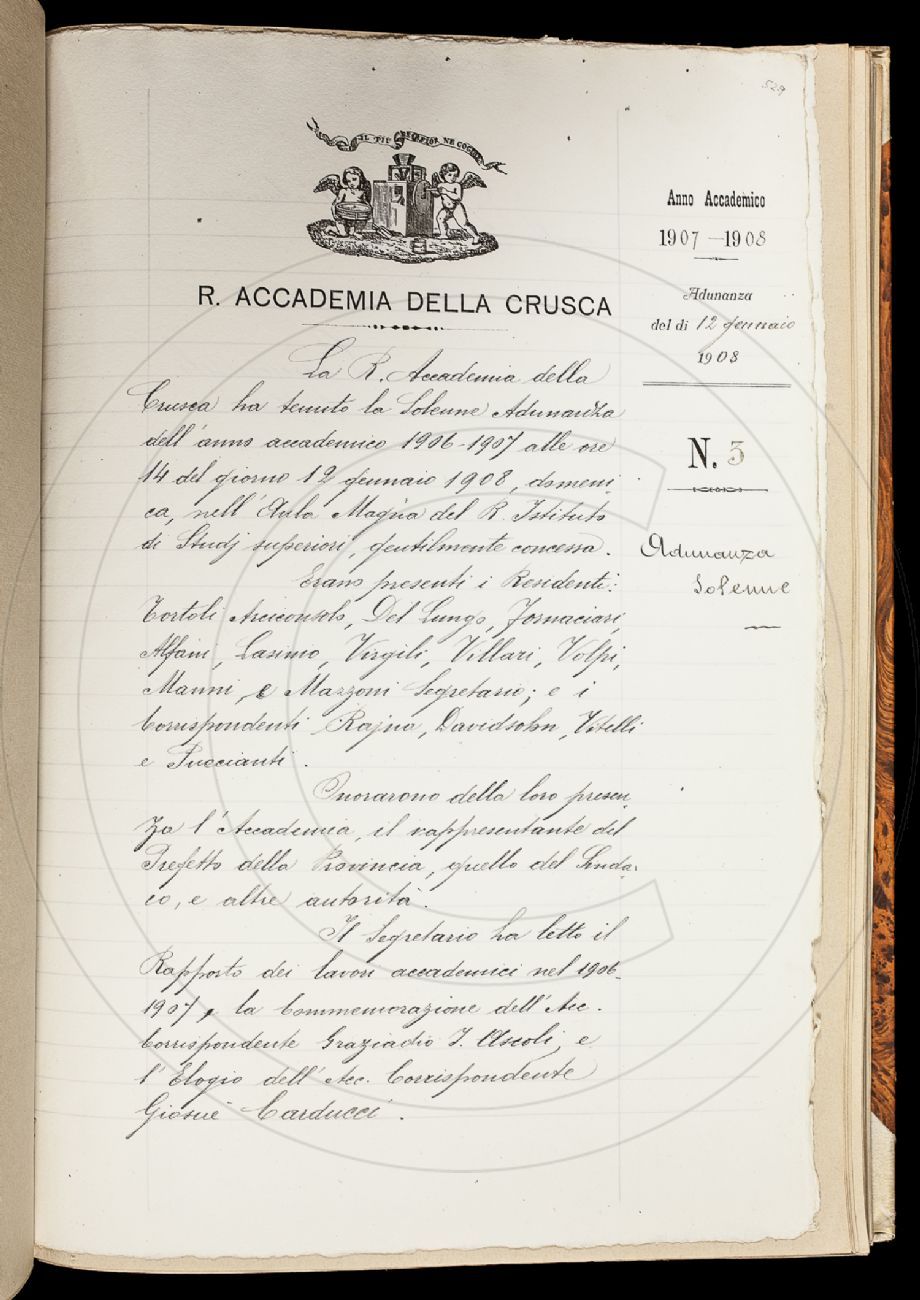 529
IL PIÙ BEL FIOR NE COGLIE
R. ACCADEMIA DELLA CRUSCA
Anno Accademico
1907-1908
Adunanza
del dì 12 gennaio
1908
N. 3
Adunanza
Solenne
La R. Accademia della
Crusca ha tenuto la Solenne Adunanza
dell'anno accademico 1906-1907 alle ore
14 del giorno 12 gennaio 1908, domeni
ca, nell'Aula Magna del R. Istituto
di Studj superiori, gentilmente concessa.
Erano presenti i Residenti:
Tortoli Arciconsolo, Del Lungo, Fornaciari,
Alfani, Lasinio, Virgili, Villari, Volpi,
Manni, e Mazzoni Segretario; e i
Corrispondenti Rajna, Davidsohn, Vitelli
e Puccianti.
Onorarono della loro presen
za l'Accademia, il rappresentante del
Prefetto della Provincia, quello del Sinda-
co, e altre autorità.
Il Segretario ha letto il
Rapporto dei lavori accademici nel 1906-
1907, la Commemorazione dell'Acc.
Corrispondente Graziadio I. Ascoli, e
l'Elogio dell'Acc. Corrispondente
Giosuè Carducci.